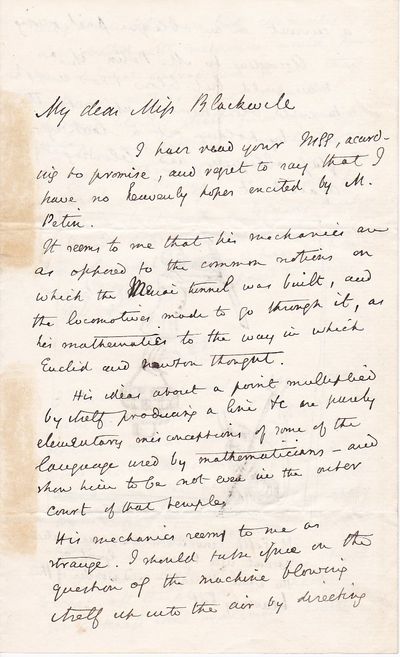 My dear Miss Blackwell
I have read your MSS, accord-
ing to promise, and regret to say that I
have no heavenly hopes excited by M.
Petin.
It seems to me that his mechanics are
as opposed to the common notions on
which the Menai tunnel was built, and
the locomotives made to go through it, as
his mathematics to the way in which
Euclid and Newton thought.
His ideas about a point multiplied
by itself producing a line &c are purely
elementary misconceptions of some of the
language used by mathematicians – and
show him to be not even in the outer
court of that temple.
His mechanics seems to me as
strange. I should take issue on the
question of the machine blowing
itself up into the air by directing